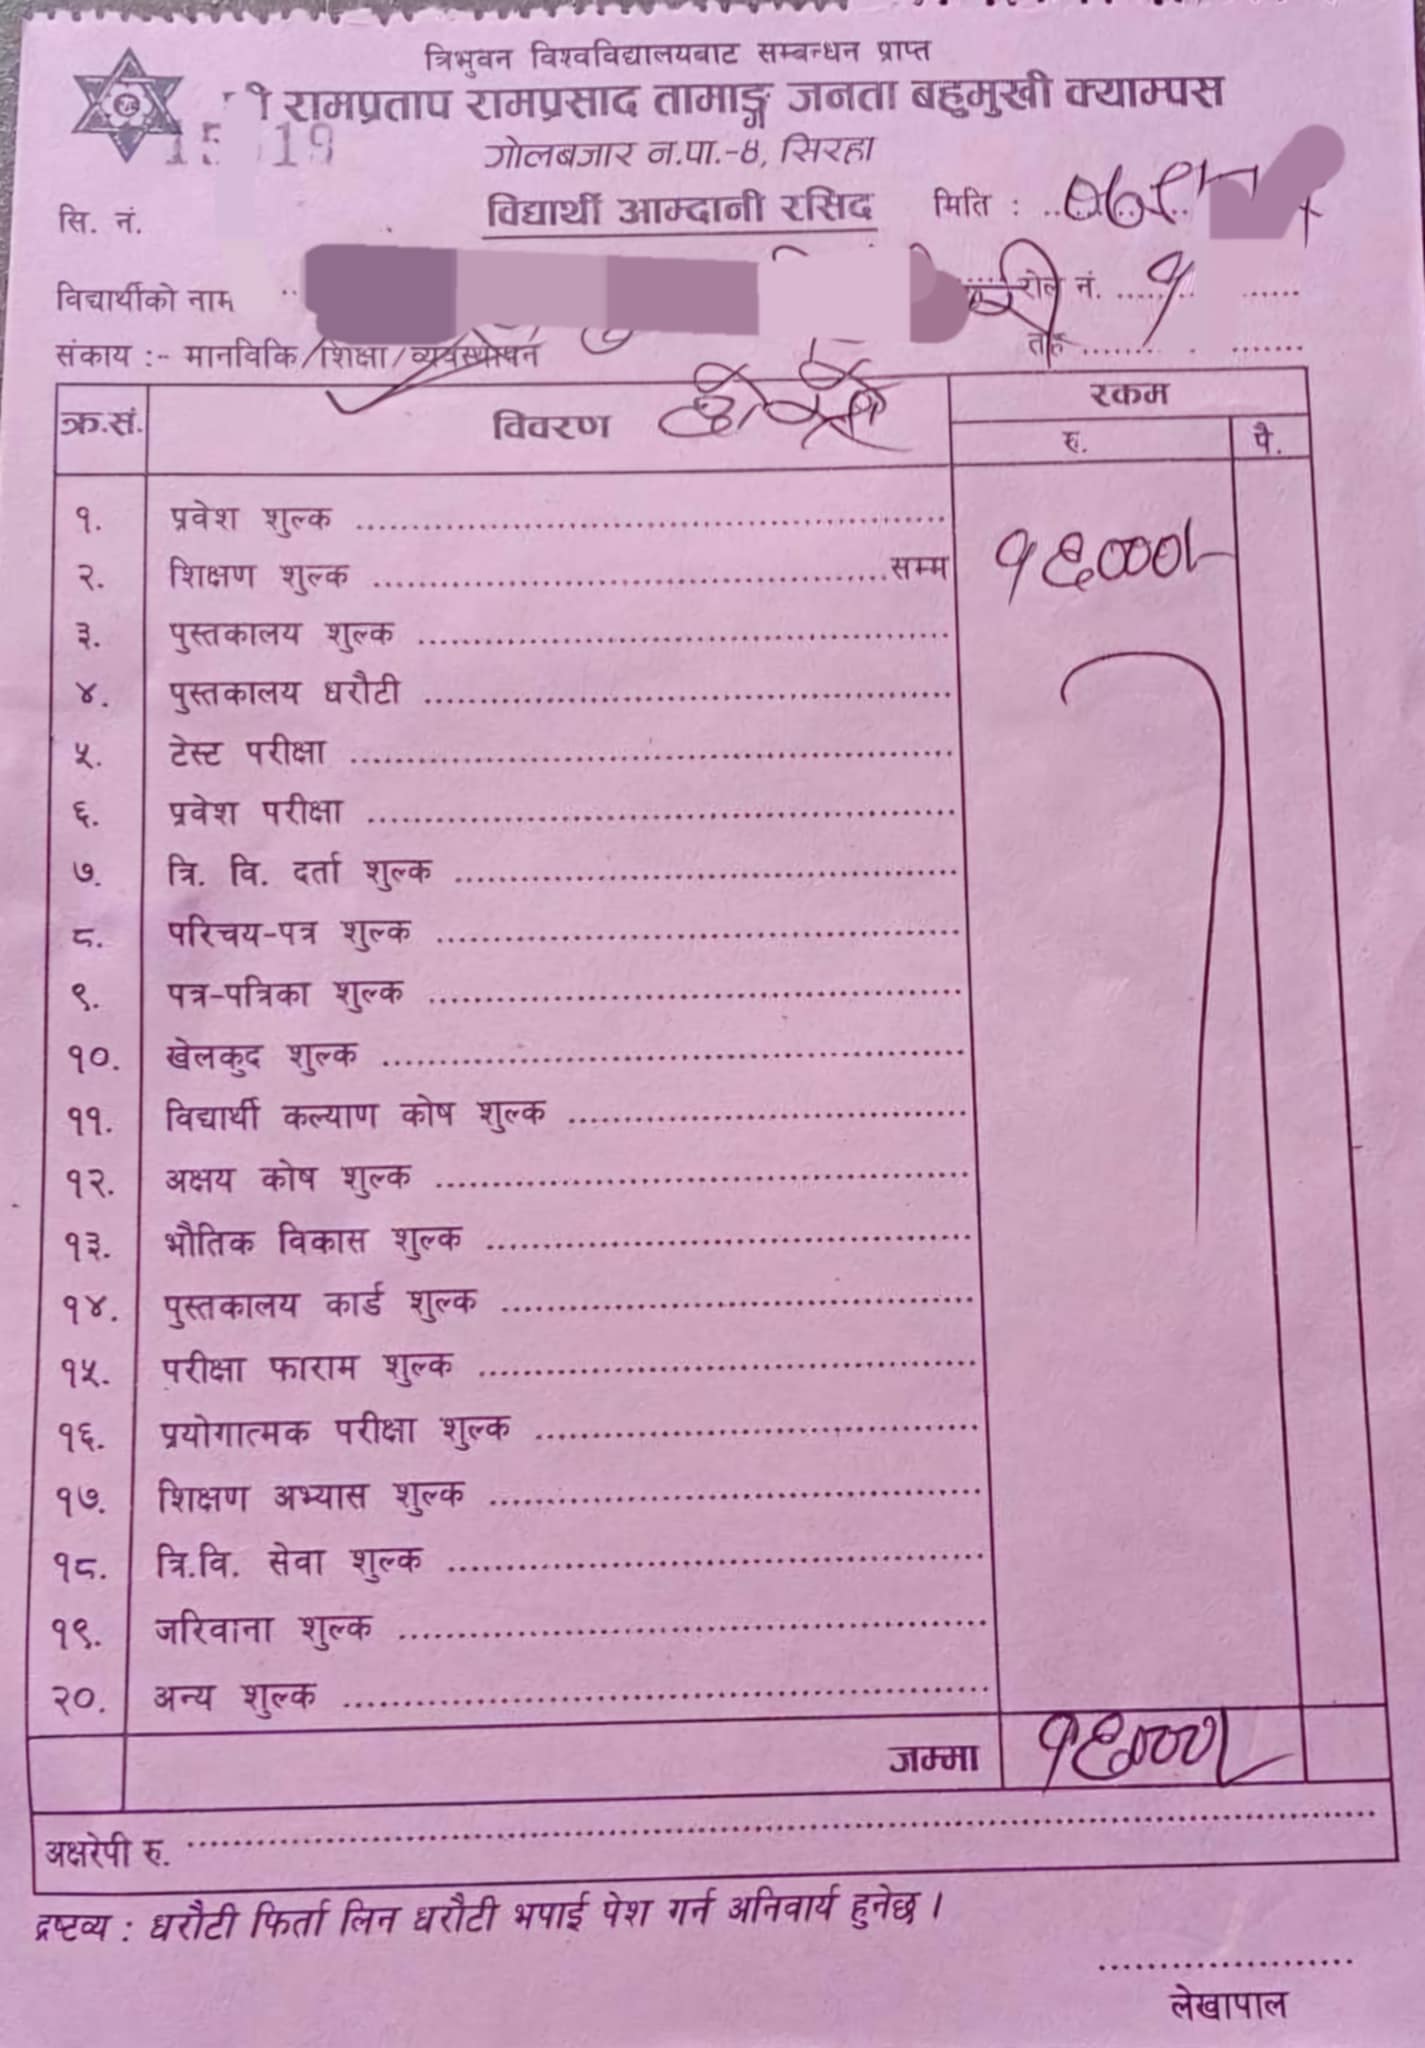 त्रिभुवन विश्वविद्यालयबाट सम्बन्धन प्राप्त
रामप्रताप रामप्रसाद तामाङ्ग जनता बहुमुखी क्याम्पस
गोलबजार न.पा.-४, सिरहा
विद्यार्थी आम्दानी रसिद
मिति :
सि. नं.
विद्यार्थीको नाम रोल नं. १
संकाय :- मानविकि/शिक्षा/व्यवस्थापन तह
क्र.सं. विवरण रकम
रु. पै.
१. प्रवेश शुल्क
२. शिक्षण शुल्क सम्म १६०००/-
३. पुस्तकालय शुल्क
४. पुस्तकालय धरौटी
५. टेस्ट परीक्षा
६. प्रवेश परीक्षा
७. त्रि. वि. दर्ता शुल्क
८. परिचय-पत्र शुल्क
९. पत्र-पत्रिका शुल्क
१०. खेलकुद शुल्क
११. विद्यार्थी कल्याण कोष शुल्क
१२. अक्षय कोष शुल्क
१३. भौतिक विकास शुल्क
१४. पुस्तकालय कार्ड शुल्क
१५. परीक्षा फाराम शुल्क
१६. प्रयोगात्मक परीक्षा शुल्क
१७. शिक्षण अभ्यास शुल्क
१८. त्रि.वि. सेवा शुल्क
१९. जरिवाना शुल्क
२०. अन्य शुल्क
जम्मा १६०००/-
अक्षरेपी रु.
द्रष्टव्य : धरौटी फिर्ता लिन धरौटी भपाई पेश गर्न अनिवार्य हुनेछ ।
लेखापाल